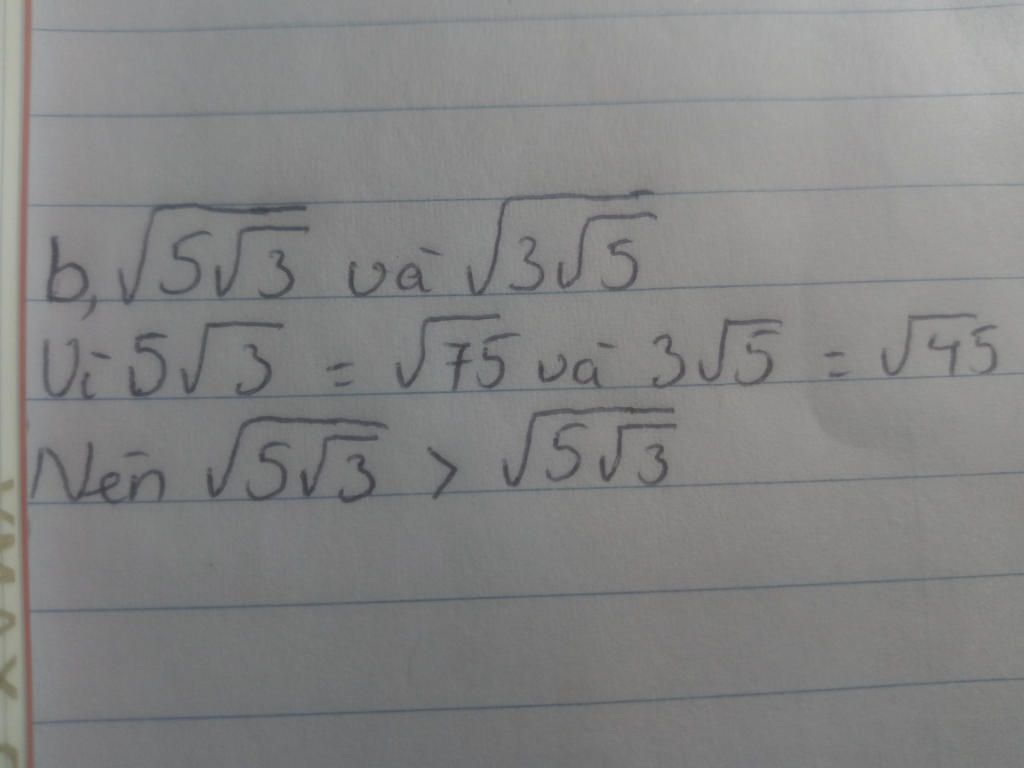 b, √(5√3) và √(3√5)
Vì 5√3 = √75 và 3√5 = √45
Nên √(5√3) > √(5√3)